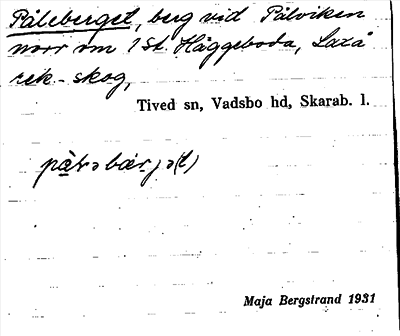 Påleberget, berg vid Pålviken
norr om 1 St. Häggeboda, Laxå
rek-skog,
Tived sn, Vadsbo hd, Skarab. l.
Maja Bergstrand 1931